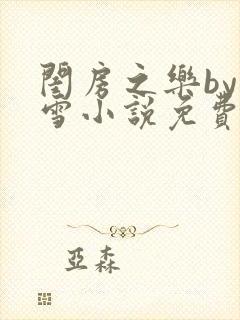 閨房之樂by
雪小說免費
亞森